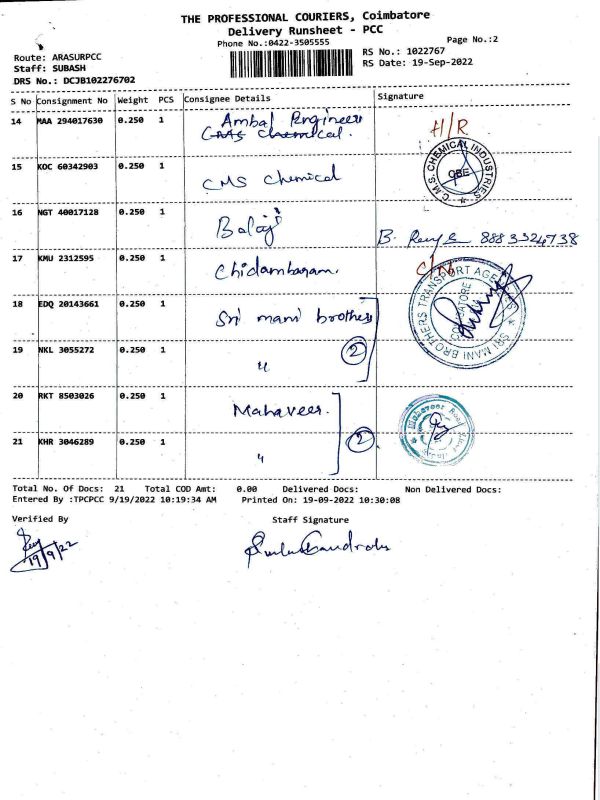 THE PROFESSIONAL COURIERS, Coimbatore
Delivery Runsheet - PCC
Phone No.:0422-3505555
Page No.:2
Route: ARASURPCC
Staff: SUBASH
DRS No.: DCJB102276702
RS No.: 1022767
RS Date: 19-Sep-2022
S No Consignment No Weight PCS Consignee Details Signature
14 MAA 294017630 0.250 1 Ambal Engineers
CMS Chemical. H/R
15 KOC 60342903 0.250 1 CMS Chemical
C.M.S. CHEMICAL INDUSTRIES
CBE
16 NGT 40017128 0.250 1 Balaji B. 8883324738
17 KMU 2312595 0.250 1 Chidambaram.
18 EDQ 20143661 0.250 1 Sri mani brothers
SRI MANI BROTHERS TRANSPORT AGENCIES
COIMBATORE
19 NKL 3055272 0.250 1 " 2
20 RKT 8503026 1 Mahaveer.
0.250
Mahaveer
21 KHR 3046289 0.250 1 " 2
Total No. Of Docs: 21 Total COD Amt: 0.00 Delivered Docs: Non Delivered Docs:
Entered By :TPCPCC 9/19/2022 10:19:34 AM Printed On: 19-09-2022 10:30:08
Verified By Staff Signature
19/9/22